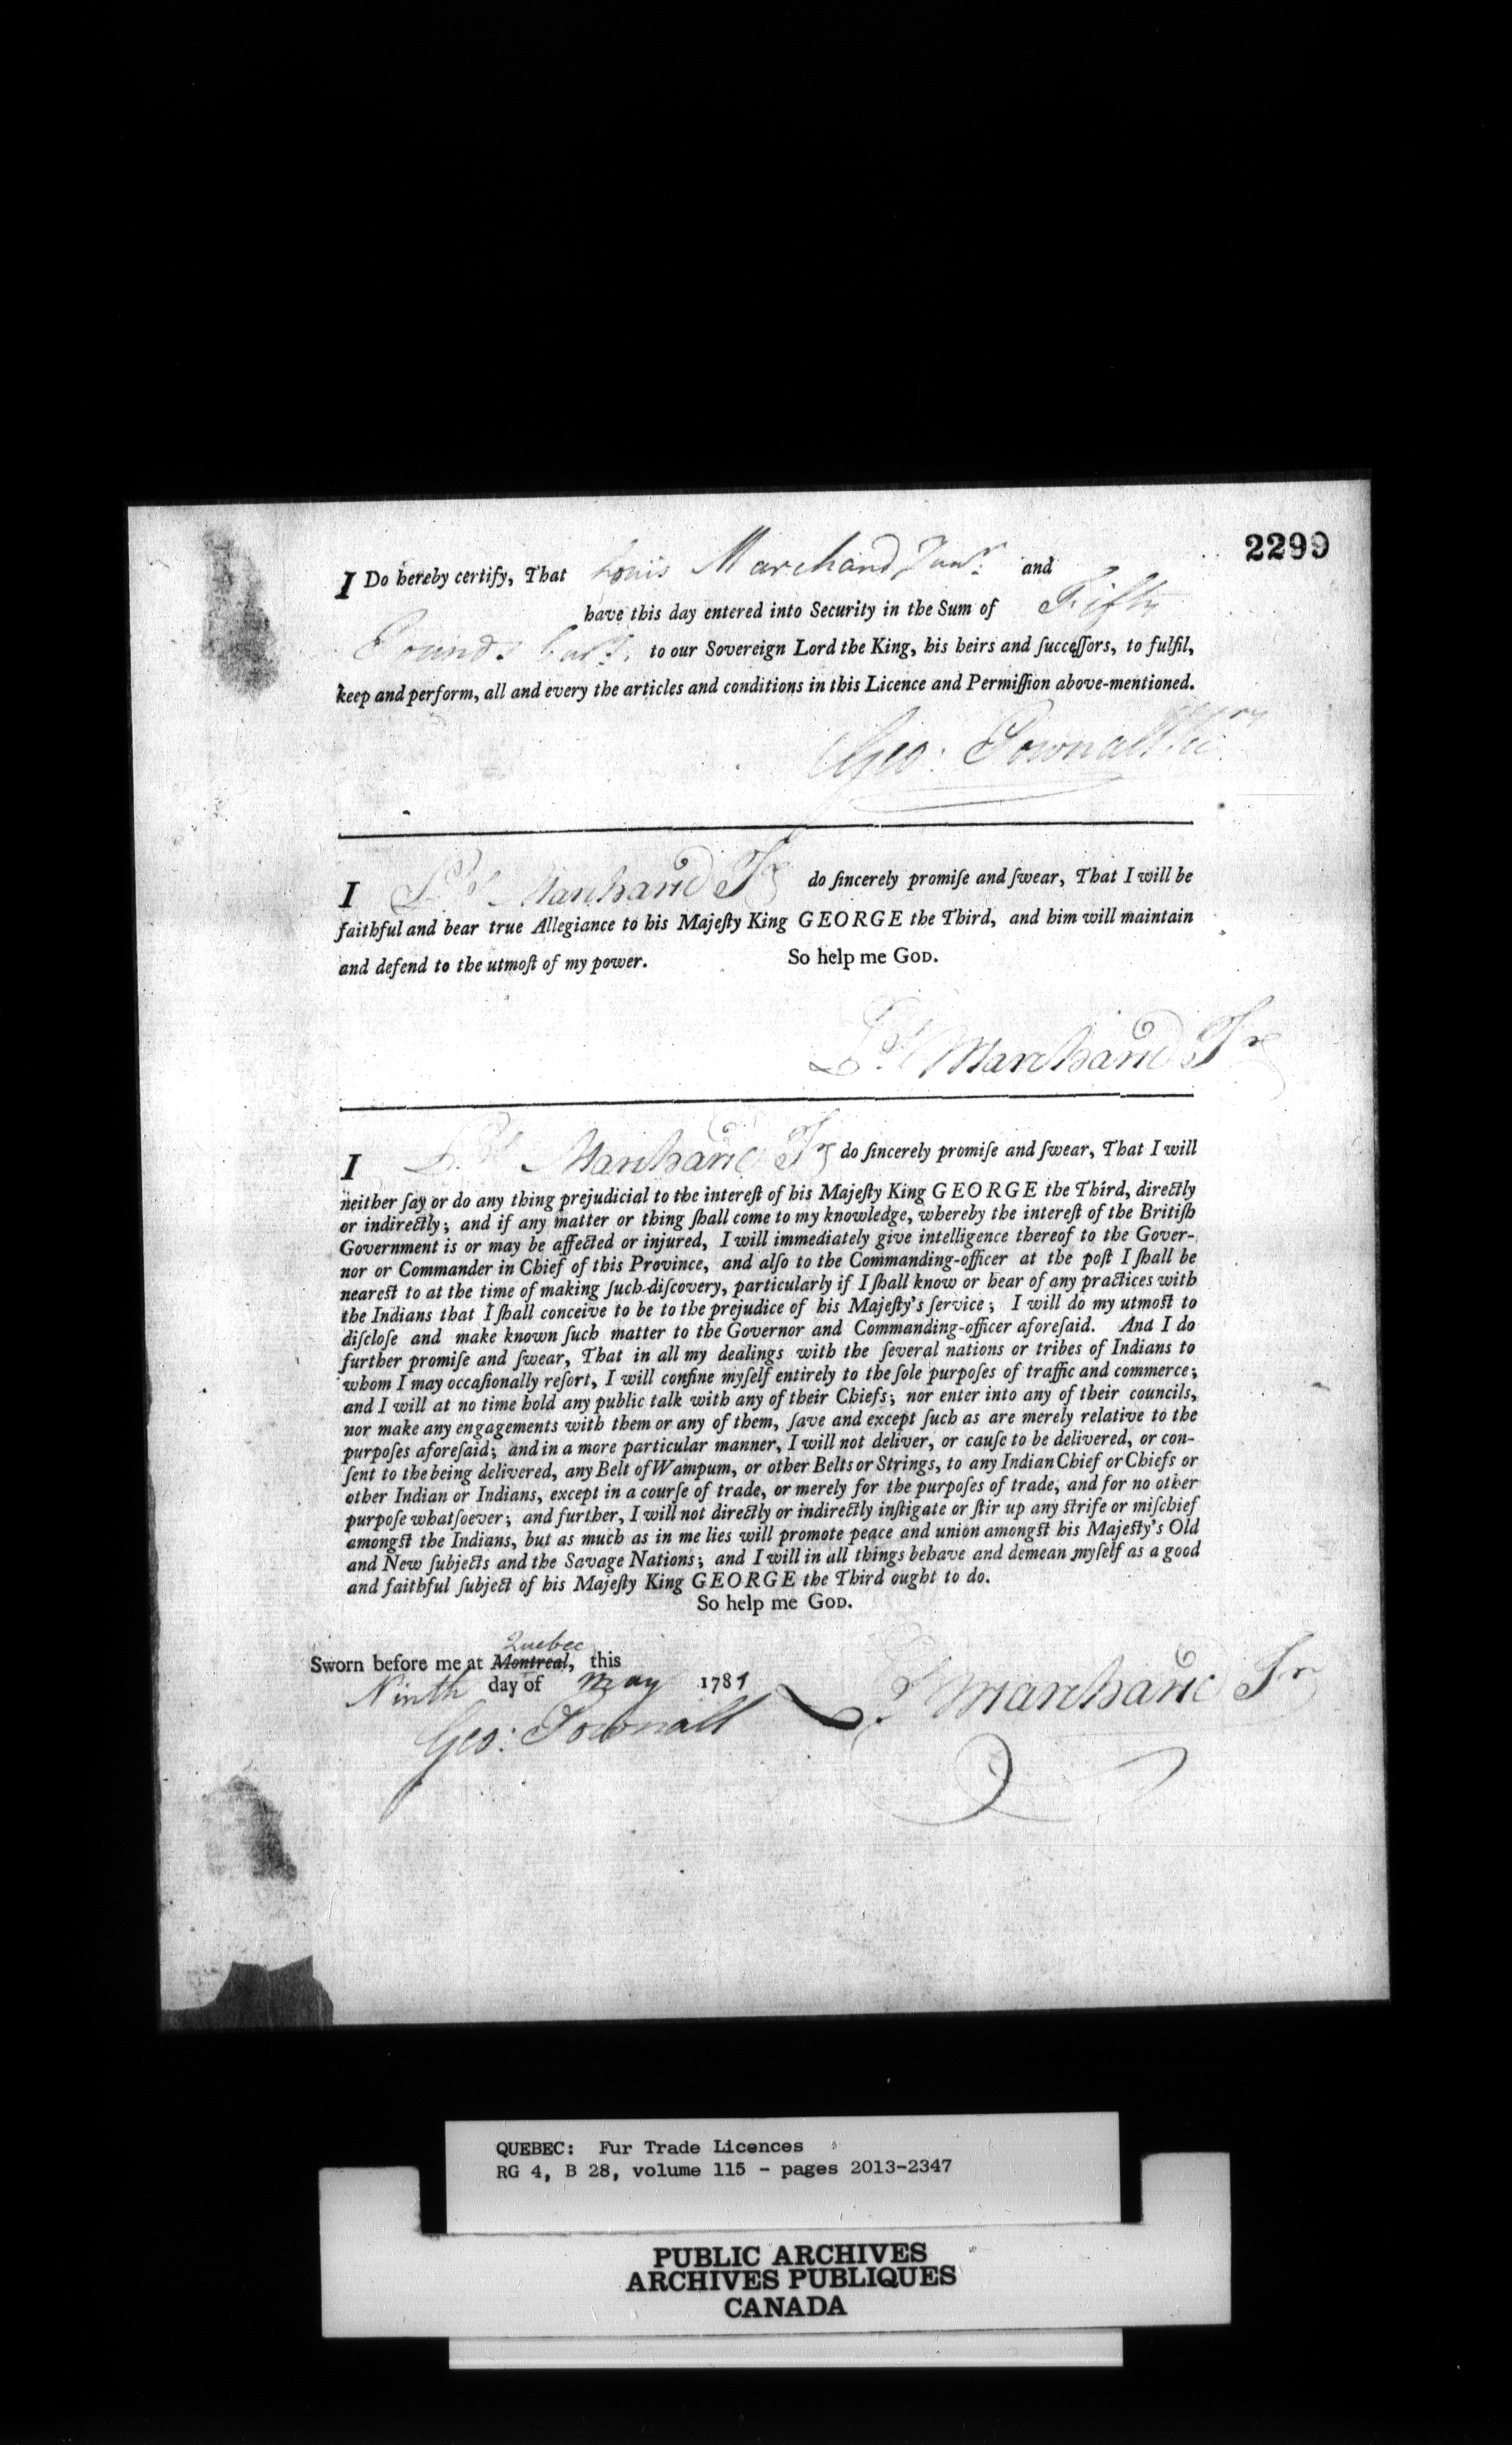 2299
I Do hereby certify, That Louis Marchand Junr. and
have this day entered into Security in the Sum of Fifty
Pounds to our Sovereign Lord the King, his heirs and ſucceſſors, to fulfil,
keep and perform, all and every the articles and conditions in this Licence and Permiſſion above-mentioned.
Geo: Pownall Secry
I Ls Marchand Jr do ſincerely promiſe and ſwear, That I will be
faithful and bear true Allegiance to his Majeſty King GEORGE the Third, and him will maintain
and defend to the utmoſt of my power. So help me GOD.
Ls Marchand Jr
I Ls Marchand Jr do ſincerely promiſe and ſwear, That I will
neither ſay or do any thing prejudicial to the intereſt of his Majeſty King GEORGE the Third, directly
or indirectly; and if any matter or thing ſhall come to my knowledge, whereby the intereſt of the Britiſh
Government is or may be affected or injured, I will immediately give intelligence thereof to the Gover-
nor or Commander in Chief of this Province, and alſo to the Commanding-officer at the poſt I ſhall be
nearest to at the time of making ſuch diſcovery, particularly if I ſhall know or hear of any practices with
the Indians that I ſhall conceive to be to the prejudice of his Majeſty's ſervice; I will do my utmost to
diſcloſe and make known ſuch matter to the Governor and Commanding-officer aforeſaid. And I do
further promiſe and ſwear, That in all my dealings with the ſeveral nations or tribes of Indians to
whom I may occaſionally reſort, I will confine myſelf entirely to the ſole purpoſes of traffic and commerce;
and I will at no time hold any public talk with any of their Chiefs; nor enter into any of their councils,
nor make any engagements with them or any of them, ſave and except ſuch as are merely relative to the
purpoſes aforeſaid; and in a more particular manner, I will not deliver, or cauſe to be delivered, or con-
ſent to the being delivered, any Belt of Wampum, or other Belts or Strings, to any Indian Chief or Chiefs or
other Indian or Indians, except in a courſe of trade, or merely for the purpoſes of trade, and for no other
purpoſe whatſoever; and further, I will not directly or indirectly inſtigate or ſtir up any strife or miſchief
amongst the Indians, but as much as in me lies will promote peace and union amongst his Majesty's Old
and New ſubjects and the Savage Nations; and I will in all things behave and demean myſelf as a good
and faithful ſubject of his Majeſty King GEORGE the Third ought to do.
So help me GOD.
Quebec
Sworn before me at Montreal, this
Ninth day of May 1781
Geo: Pownall
Ls Marchand Jr
QUEBEC: Fur Trade Licences
RG 4, B 28, volume 115 - pages 2013-2347
PUBLIC ARCHIVES
ARCHIVES PUBLIQUES
CANADA